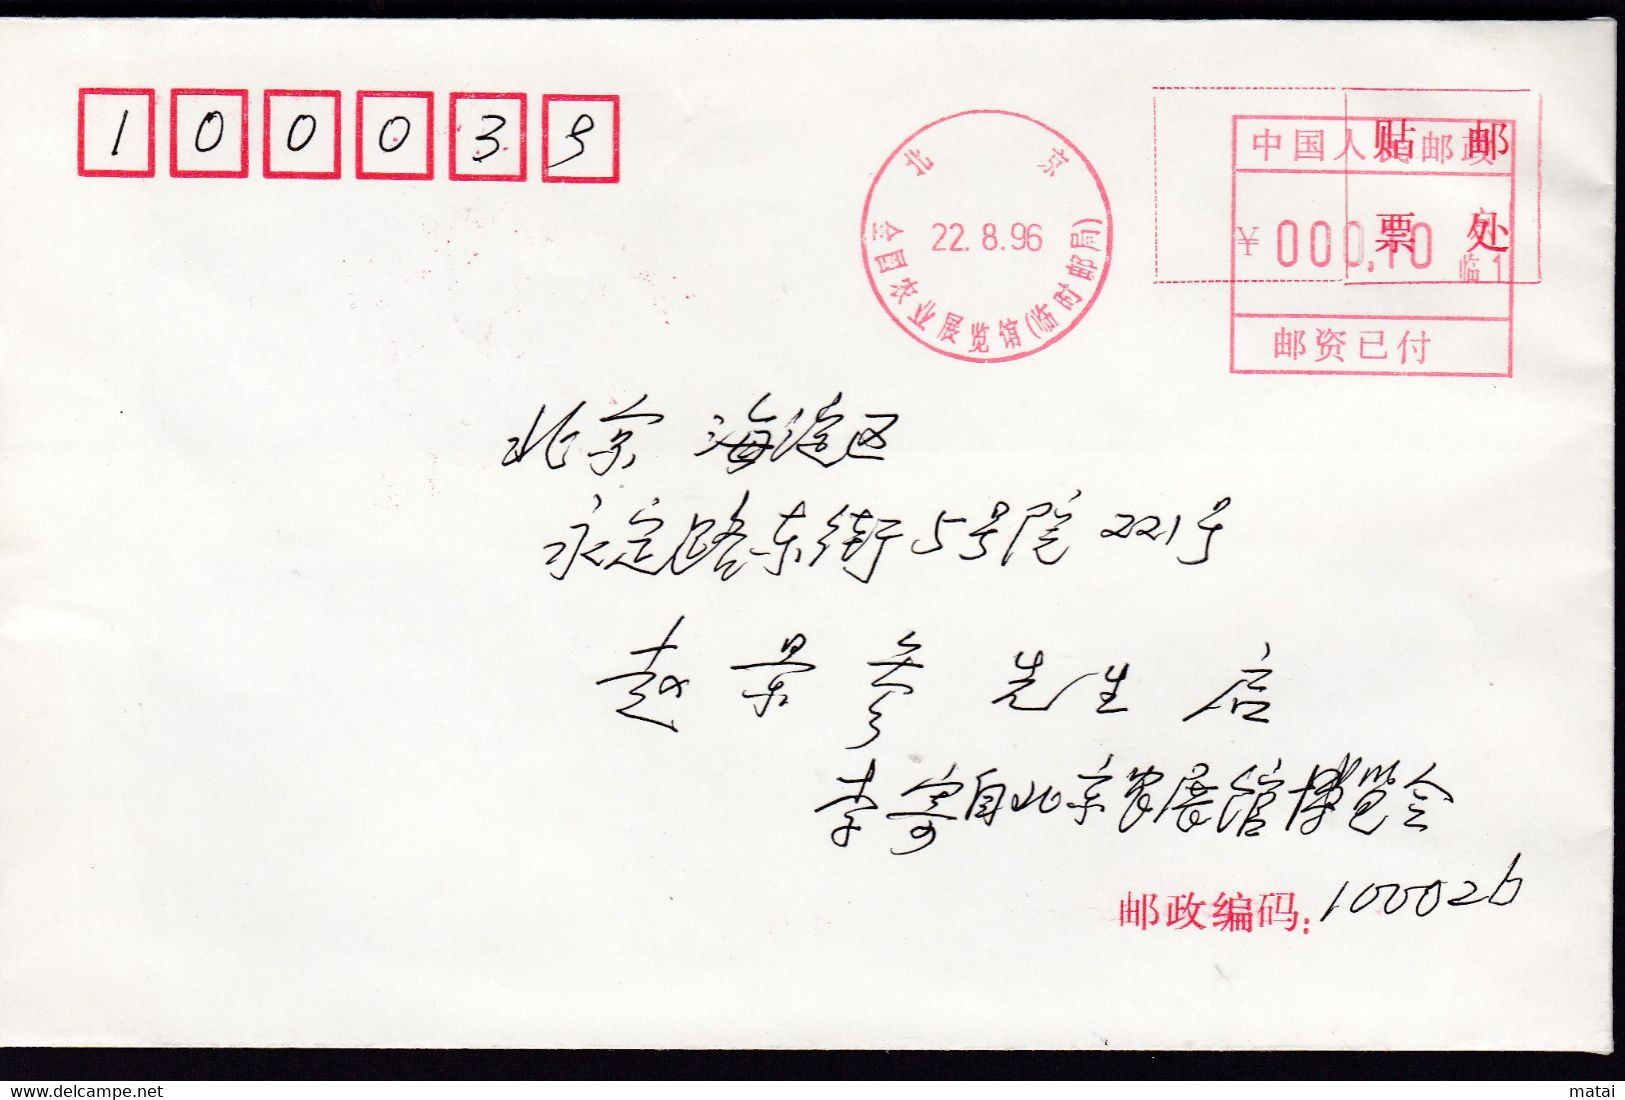 100039
北京
22.8.96
全国农业展览馆(临时邮局)
中国人民邮政
贴邮
票处
¥000.10
临1
邮资已付
北京 海淀区
永定路东街5号院221号
赵景 先生 启
李寄自北京农展馆博览会
邮政编码：100026
delcampe.net
matai